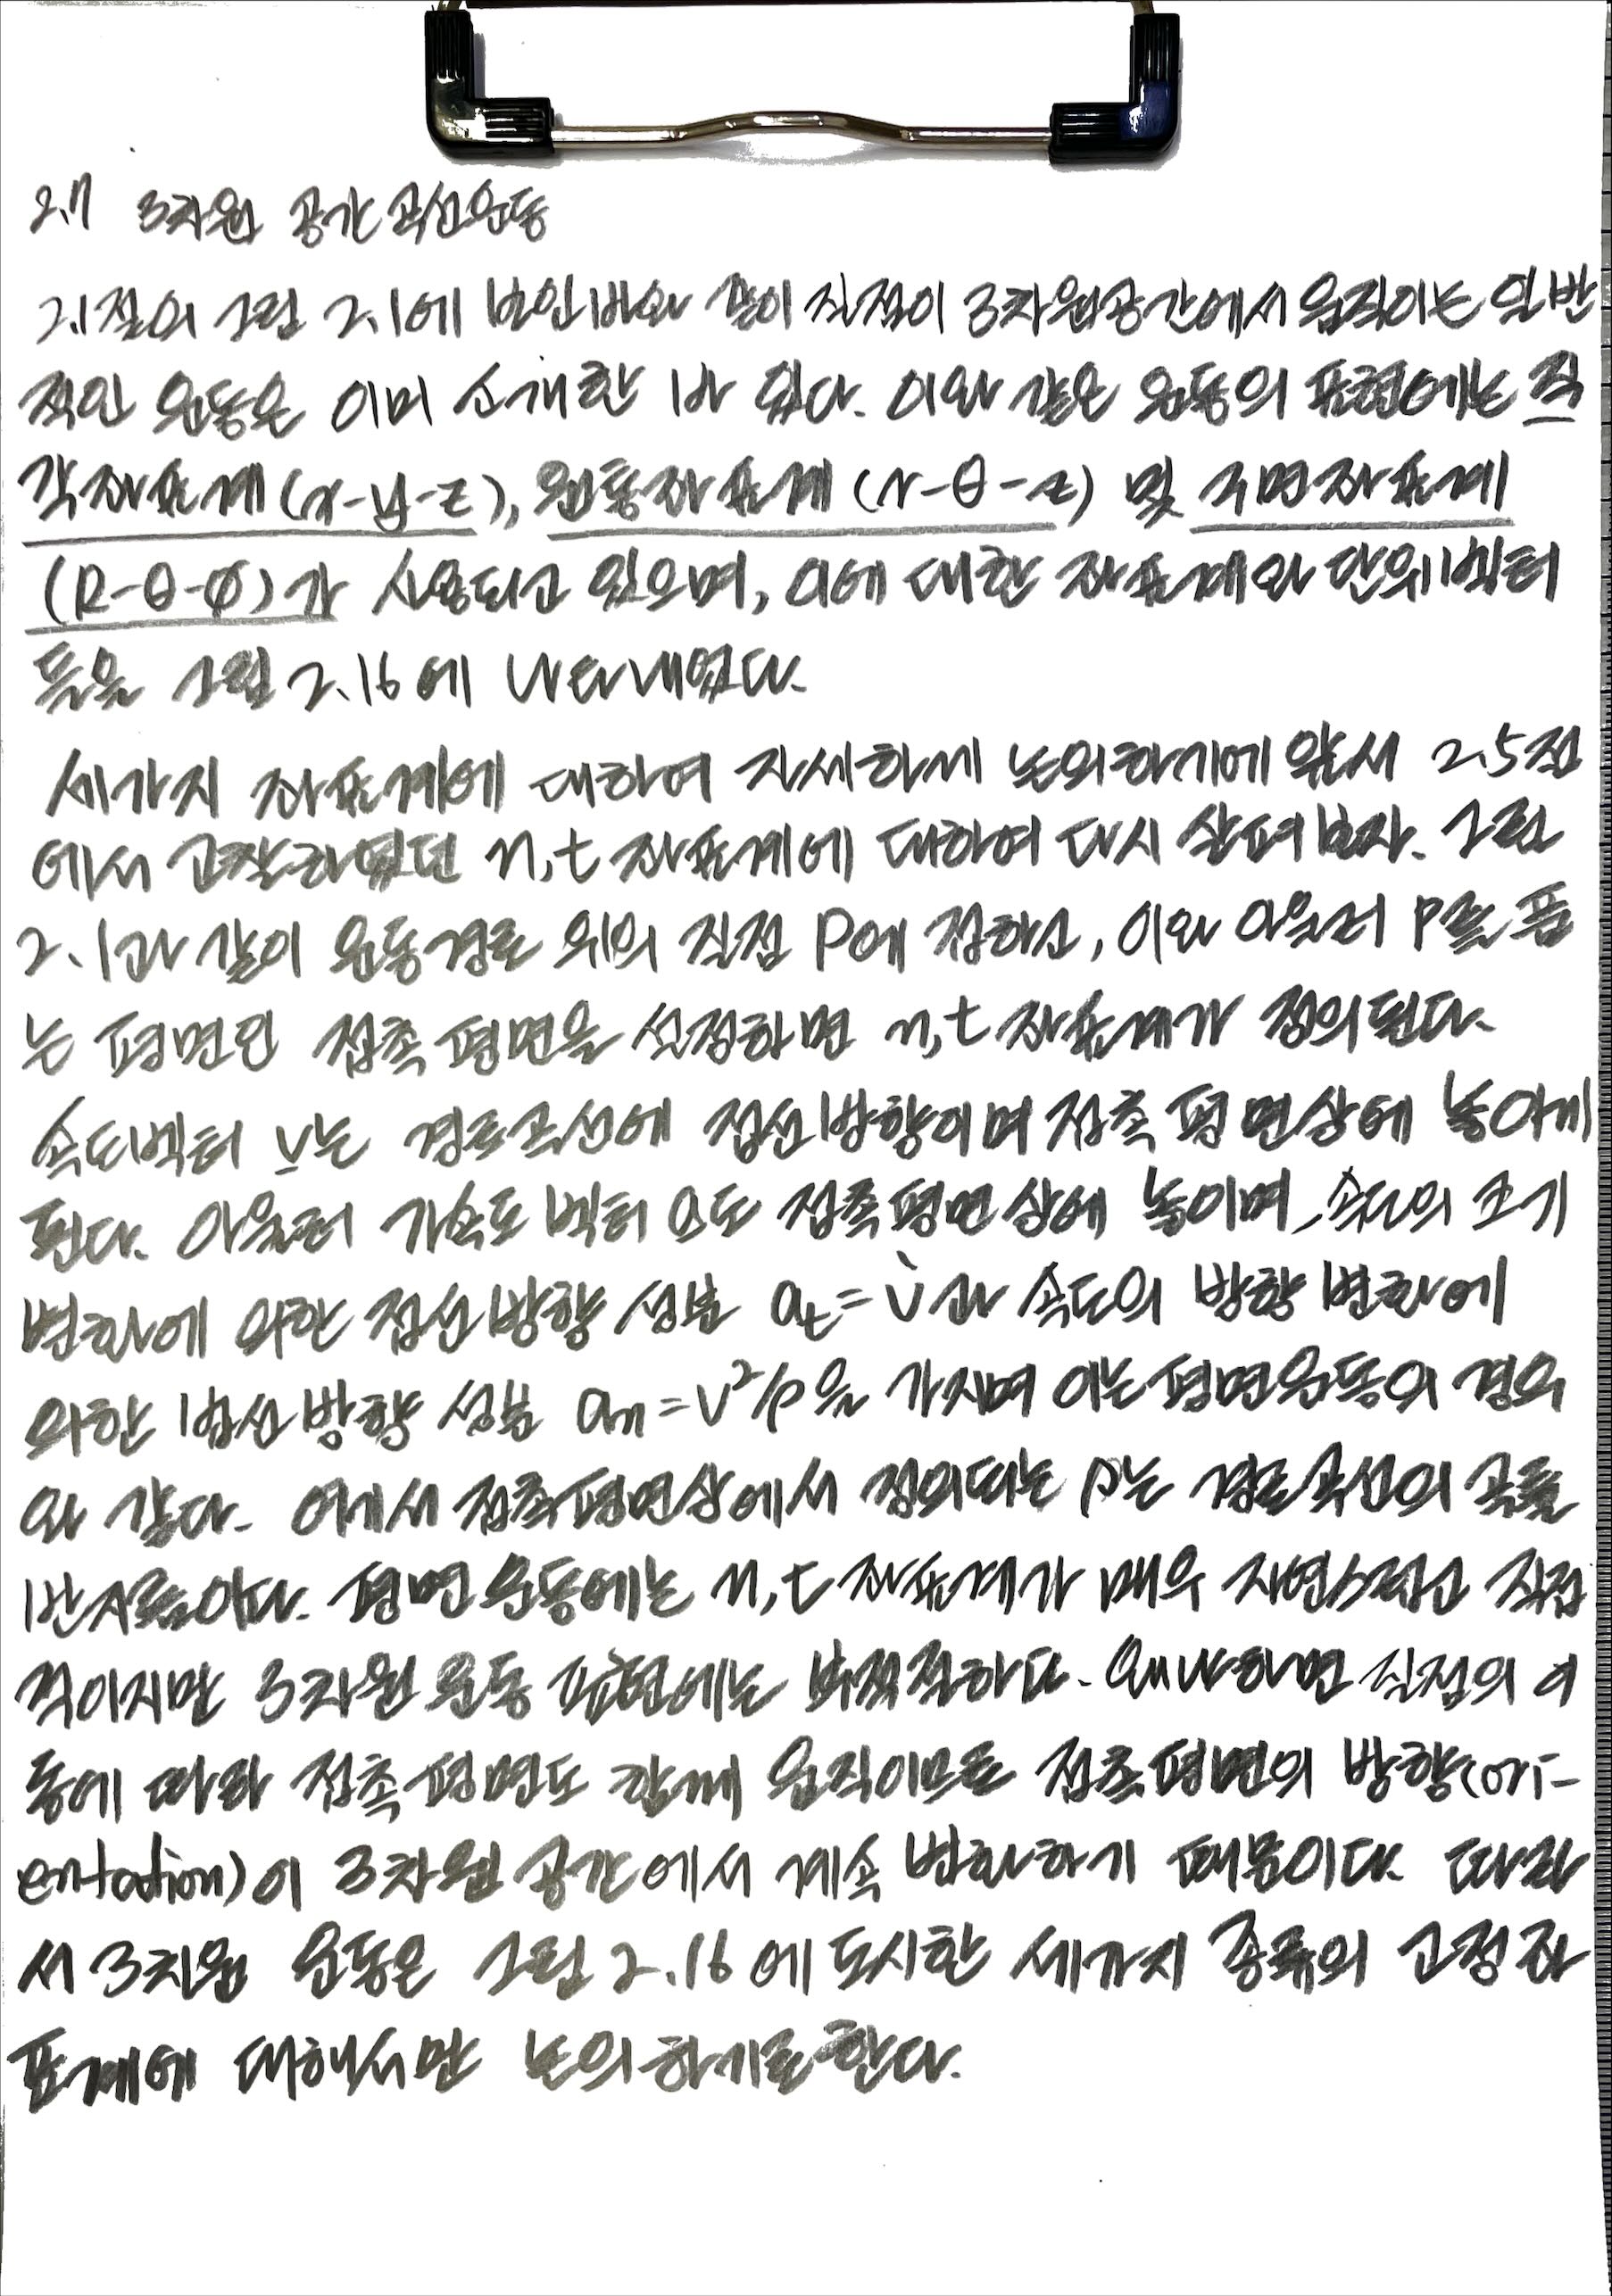 2.7 3차원 공간 곡선운동
2.1절의 그림 2.1에 보인바와 같이 질점이 3차원공간에서 움직이는 일반
적인 운동은 이미 소개한 바 있다. 이와 같은 운동의 표현에는 직
각좌표계(x-y-z), 원통좌표계(r-θ-z) 및 구면좌표계
(R-θ-φ)가 사용되고 있으며, 이에 대한 좌표계와 단위벡터
들을 그림 2.16에 나타내었다.
세가지 좌표계에 대하여 자세하게 논의하기에 앞서 2.5절
에서 고찰하였던 n,t 좌표계에 대하여 다시 살펴보자. 그림
2.1과 같이 운동경로 위의 질점 P에 접하고, 이와 아울러 P를 품
는 평면인 접촉평면을 설정하면 n,t 좌표계가 정의된다.
속도벡터 v는 경로곡선에 접선방향이며 접촉평면상에 놓이게
된다. 아울러 가속도 벡터 a도 접촉평면상에 놓이며, 속도의 크기
변화에 의한 접선방향 성분 at=v̇과 속도의 방향 변화에
의한 법선방향 성분 an=v²/ρ을 가지며 이는 평면운동의 경우
와 같다. 여기서 접촉평면상에서 정의되는 ρ는 경로곡선의 곡률
반지름이다. 평면운동에는 n,t 좌표계가 매우 자연스럽고 직접
적이지만 3차원 운동 표현에는 부적절하다. 왜냐하면 질점의 이
동에 따라 접촉평면도 함께 움직이므로 접촉평면의 방향(ori-
entation)이 3차원 공간에서 계속 변화하기 때문이다. 따라
서 3차원 운동은 그림 2.16에 도시한 세가지 종류의 고정좌
표계에 대해서만 논의하기로 한다.